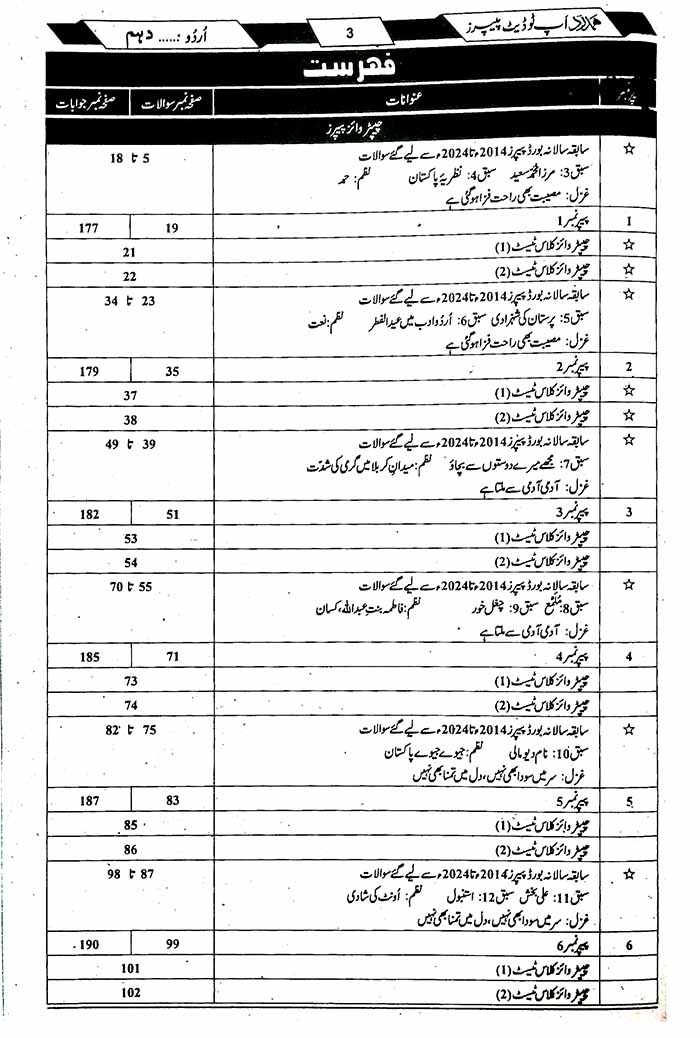 ہمدرد اَپ ٹو ڈیٹ پیپرز
3
اُردُو :..... دہم
فہرست
پیپر نمبر عنوانات صفحہ نمبر سوالات صفحہ نمبر جوابات
چیپٹر وائز پیپرز
☆ سابقہ سالانہ بورڈ پیپرز 2014ء تا 2024ء سے لیے گئے سوالات 5 تا 18
سبق 3: مرزا محمد سعید سبق 4: نظریۂ پاکستان نظم: حمد
غزل: مصیبت بھی راحت فزا ہو گئی ہے
1 پیپر نمبر 1 19 177
☆ چیپٹر وائز کلاس ٹیسٹ (1) 21
☆ چیپٹر وائز کلاس ٹیسٹ (2) 22
☆ سابقہ سالانہ بورڈ پیپرز 2014ء تا 2024ء سے لیے گئے سوالات 23 تا 34
سبق 5: پرستان کی شہزادی سبق 6: اُردُو ادب میں عید الفطر نظم: نعت
غزل: مصیبت بھی راحت فزا ہو گئی ہے
2 پیپر نمبر 2 35 179
☆ چیپٹر وائز کلاس ٹیسٹ (1) 37
☆ چیپٹر وائز کلاس ٹیسٹ (2) 38
☆ سابقہ سالانہ بورڈ پیپرز 2014ء تا 2024ء سے لیے گئے سوالات 39 تا 49
سبق 7: مجھے میرے دوستوں سے بچاؤ نظم: میدانِ کربلا میں گرمی کی شدّت
غزل: آدمی آدمی سے ملتا ہے
3 پیپر نمبر 3 51 182
چیپٹر وائز کلاس ٹیسٹ (1) 53
چیپٹر وائز کلاس ٹیسٹ (2) 54
☆ سابقہ سالانہ بورڈ پیپرز 2014ء تا 2024ء سے لیے گئے سوالات 55 تا 70
سبق 8: مُلمّع سبق 9: چغل خور نظم: فاطمہ بنتِ عبداللہ، کسان
غزل: آدمی آدمی سے ملتا ہے
4 پیپر نمبر 4 71 185
چیپٹر وائز کلاس ٹیسٹ (1) 73
چیپٹر وائز کلاس ٹیسٹ (2) 74
☆ سابقہ سالانہ بورڈ پیپرز 2014ء تا 2024ء سے لیے گئے سوالات 75 تا 82
سبق 10: نام دیو مالی نظم: جیوے جیوے پاکستان
غزل: سر میں سودا بھی نہیں، دل میں تمنا بھی نہیں
5 پیپر نمبر 5 83 187
چیپٹر وائز کلاس ٹیسٹ (1) 85
چیپٹر وائز کلاس ٹیسٹ (2) 86
☆ سابقہ سالانہ بورڈ پیپرز 2014ء تا 2024ء سے لیے گئے سوالات 87 تا 98
سبق 11: علی بخش سبق 12: استنبول نظم: اُونٹ کی شادی
غزل: سر میں سودا بھی نہیں، دل میں تمنا بھی نہیں
6 پیپر نمبر 6 99 190
چیپٹر وائز کلاس ٹیسٹ (1) 101
چیپٹر وائز کلاس ٹیسٹ (2) 102